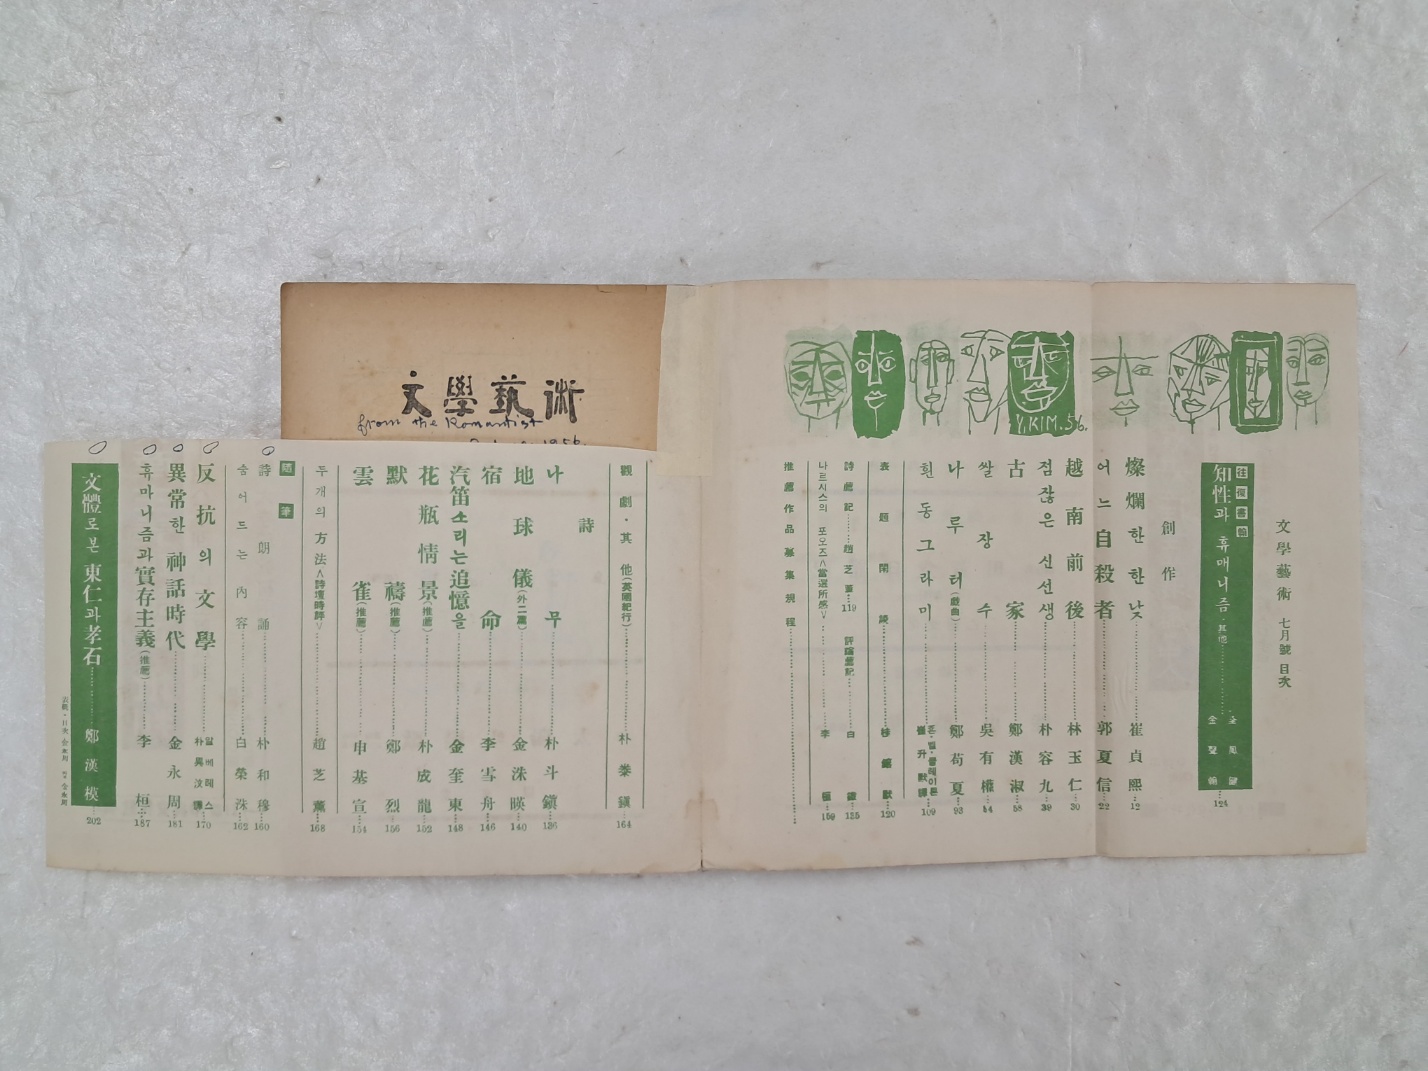 文學藝術 七月號 目次
往復書翰
知性과 휴매니즘·其他
124
創作
燦爛한 한낮……崔貞熙…12
어느 自殺者……郭夏信…22
越南前後……林玉仁…30
점잖은 신선생……朴容九…39
古家……鄭漢淑…58
쌀장수……吳有權…84
나루터(戱曲)……鄭荀夏…93
흰 동그라미……崔升默譯…109
表題閑談……120
詩薦記……趙芝薰…119 評論薦記……白鐵…135
나르시스의 포오즈<當選所感>……李…159
推薦作品募集規程
Y.KIM.56.
文學藝術
from the Romantist
1956.
觀劇·其他(英國紀行)……朴泰鎭…164
詩
나무……朴斗鎭…136
地球儀(外二篇)……金洙暎…140
宿命……李雪舟…146
汽笛소리는 追憶을……金奎東…148
花甁情景(推薦)……朴成龍…152
默禱(推薦)……鄭烈…156
雲雀(推薦)……申基宣…154
두 개의 方法<詩壇時評>……趙芝薰…168
隨筆
詩朗誦……朴和穆…160
숨어드는 內容……白榮洙…162
反抗의 文學……알베레스 朴異汶譯…170
異常한 神話時代……金永周…181
휴마니즘과 實存主義(推薦)……李桓…187
文體로 본 東仁과 孝石……鄭漢模
202